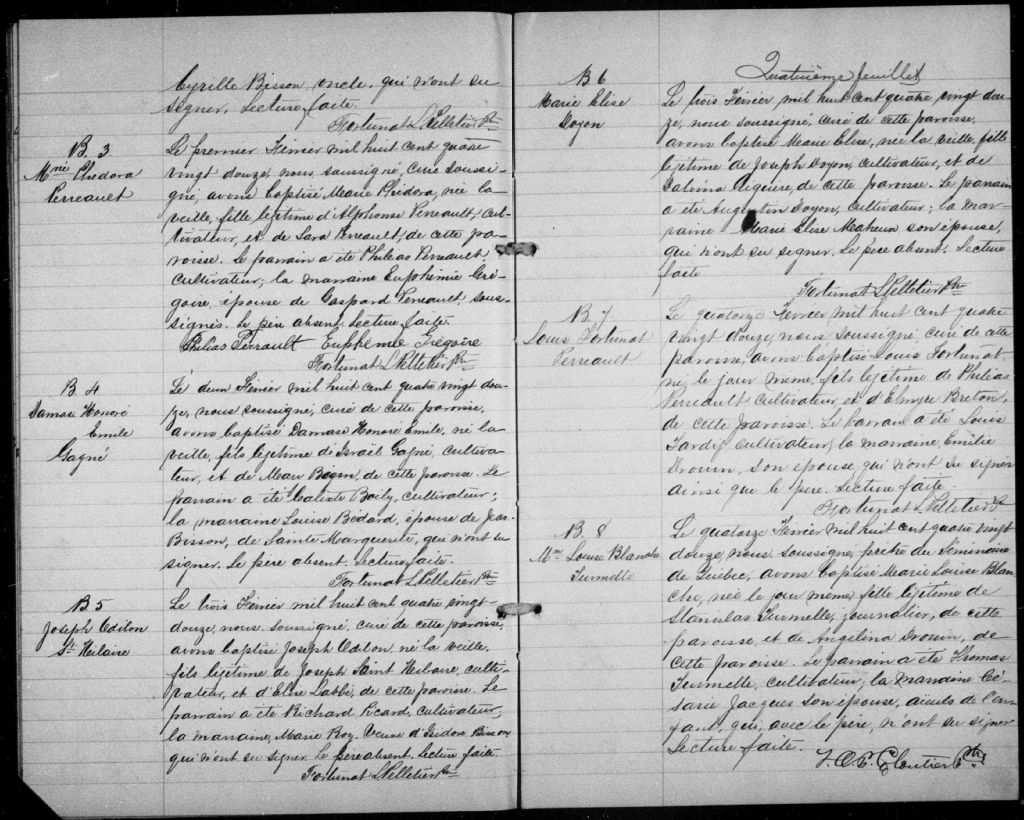 Cyrille Bisson, oncle, qui n'ont su
signer. Lecture faite.
Fortunat L Pelletier Ptre
B. 3
Mrie Phedora
Perreault
Le premier Février mil huit cent quatre
vingt douze, nous soussigné, curé soussi-
gné, avons baptisé Marie Phédora, née la
veille, fille légitime d'Alphonse Perreault, cul-
tivateur, et de Sara Perreault, de cette pa-
roisse. Le parrain a été Philéas Perreault
cultivateur; la marraine Euphémie Gré-
goire, épouse de Gaspard Perreault, sous-
signés. Le père absent. Lecture faite.
Philéas Perrault Euphémie Grégoire
Fortunat L Pelletier Ptre
B. 4
Damase Honoré
Emile
Gagné
Le deux Février mil huit cent quatre vingt dou-
ze, nous soussigné, curé de cette paroisse,
avons baptisé Damase Honoré Emile, né la
veille, fils légitime de Israël Gagné, cultiva-
teur, et de Bégin, de cette paroisse. Le
parrain a été Calixte Baily, cultivateur;
la marraine Louise Bédard, épouse de Jean
Bisson, de Sainte Marguerite, qui n'ont su
signer. Le père absent. Lecture faite.
Fortunat L Pelletier Ptre
B. 5
Joseph Odilon
St Hilaire
Le trois Février mil huit cent quatre vingt-
douze, nous soussigné, curé de cette paroisse,
avons baptisé Joseph Odilon, né la veille,
fils légitime de Joseph Saint Hilaire, culti-
vateur, et d'Elise Labbé, de cette paroisse. Le
parrain a été Richard Picard, cultivateur;
la marraine, Marie Roy, Veuve d'Isidore Bisson
qui n'ont su signer. Le père absent. Lecture faite
Fortunat L Pelletier Ptre
Quatrième feuillet
B 6
Marie Elise
Doyon
Le trois Février mil huit cent quatre vingt dou-
ze, nous soussigné, curé de cette paroisse,
avons baptisé Marie Elise, née la veille, fille
légitime de Joseph Doyon, cultivateur, et de
de cette paroisse. Le parrain
a été Augustin Doyon, cultivateur; la mar-
raine Marie Elise Maheux son épouse,
qui n'ont su signer. Le père absent. Lecture
faite
Fortunat L Pelletier Ptre
B. 7
Louis Fortunat
Perreault
Le quatorze Février, mil huit cent quatre
vingt douze, nous soussigné, curé de cette
paroisse, avons baptisé Louis Fortunat,
né le jour même, fils légitime de Philéas
Perreault cultivateur, et d'Elmyre Breton,
de cette paroisse. Le parrain a été Louis
Tardif cultivateur, la marraine Emilie
Drouin, son épouse, qui n'ont su signer
ainsi que le père. Lecture faite.
Fortunat L Pelletier Ptre
B. 8
Mie Louise Blanche
Turmelle
Le quatorze Février mil huit cent quatre vingt
douze, nous soussigné, prêtre du Séminaire
de Québec, avons baptisé Marie Louise Blan-
che, née le jour même, fille légitime de
Stanislas Turmelle, journalier, de cette
paroisse et de Angelina Drouin, de
cette paroisse. Le parrain a été Thomas
Turmelle, cultivateur; la marraine Cé-
sarie Jacques son épouse, aïeuls de l'en-
fant, qui, avec le père, n'ont su signer
Lecture faite.
Cloutier Ptre